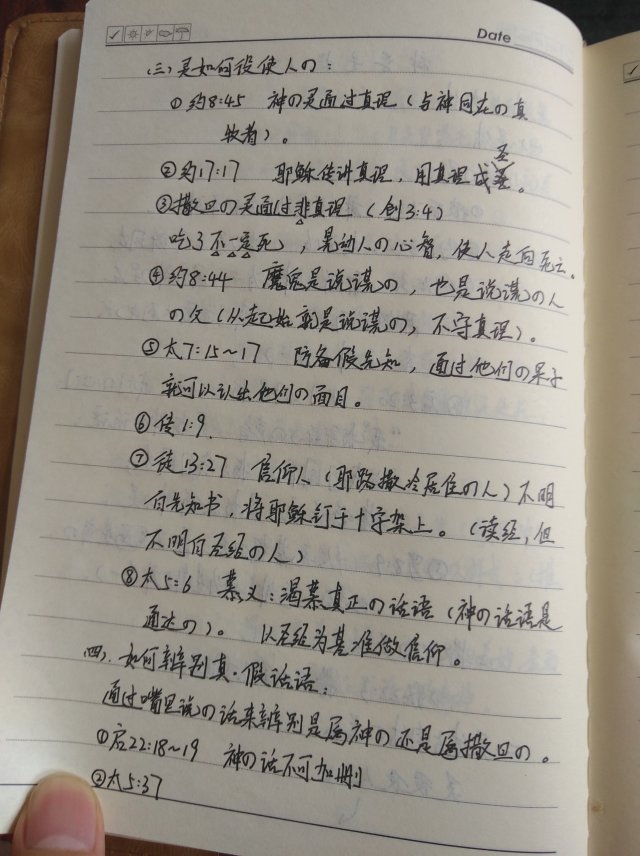 Date
(三) 灵如何役使人の:
① 约8:45 神の灵通过真理 (与神同在の真
牧者)。
② 约17:17 耶稣传讲真理, 用真理成圣。
③ 撒旦の灵通过非真理 (创3:4)
吃了不一定死), 晃动人の心智, 使人走向死亡。
④ 约8:44 魔鬼是说谎の, 也是说谎の人
の父 (从起始就是说谎の, 不守真理)。
⑤ 太7:15~17 防备假先知, 通过他们の果子
就可以认出他们の面目。
⑥ 传1:9.
⑦ 徒13:27 信仰人 (耶路撒冷居住の人) 不明
白先知书, 将耶稣钉于十字架上。(读经, 但
不明白圣经の人)
⑧ 太5:6 慕义: 渴慕真正の话语 (神の话语是
通达の)。 以圣经为基准做信仰。
四. 如何辨别真·假话语:
通过嘴里说の话来辨别是属神の还是属撒旦の。
① 启22:18~19 神の话不可加删
② 太5:37